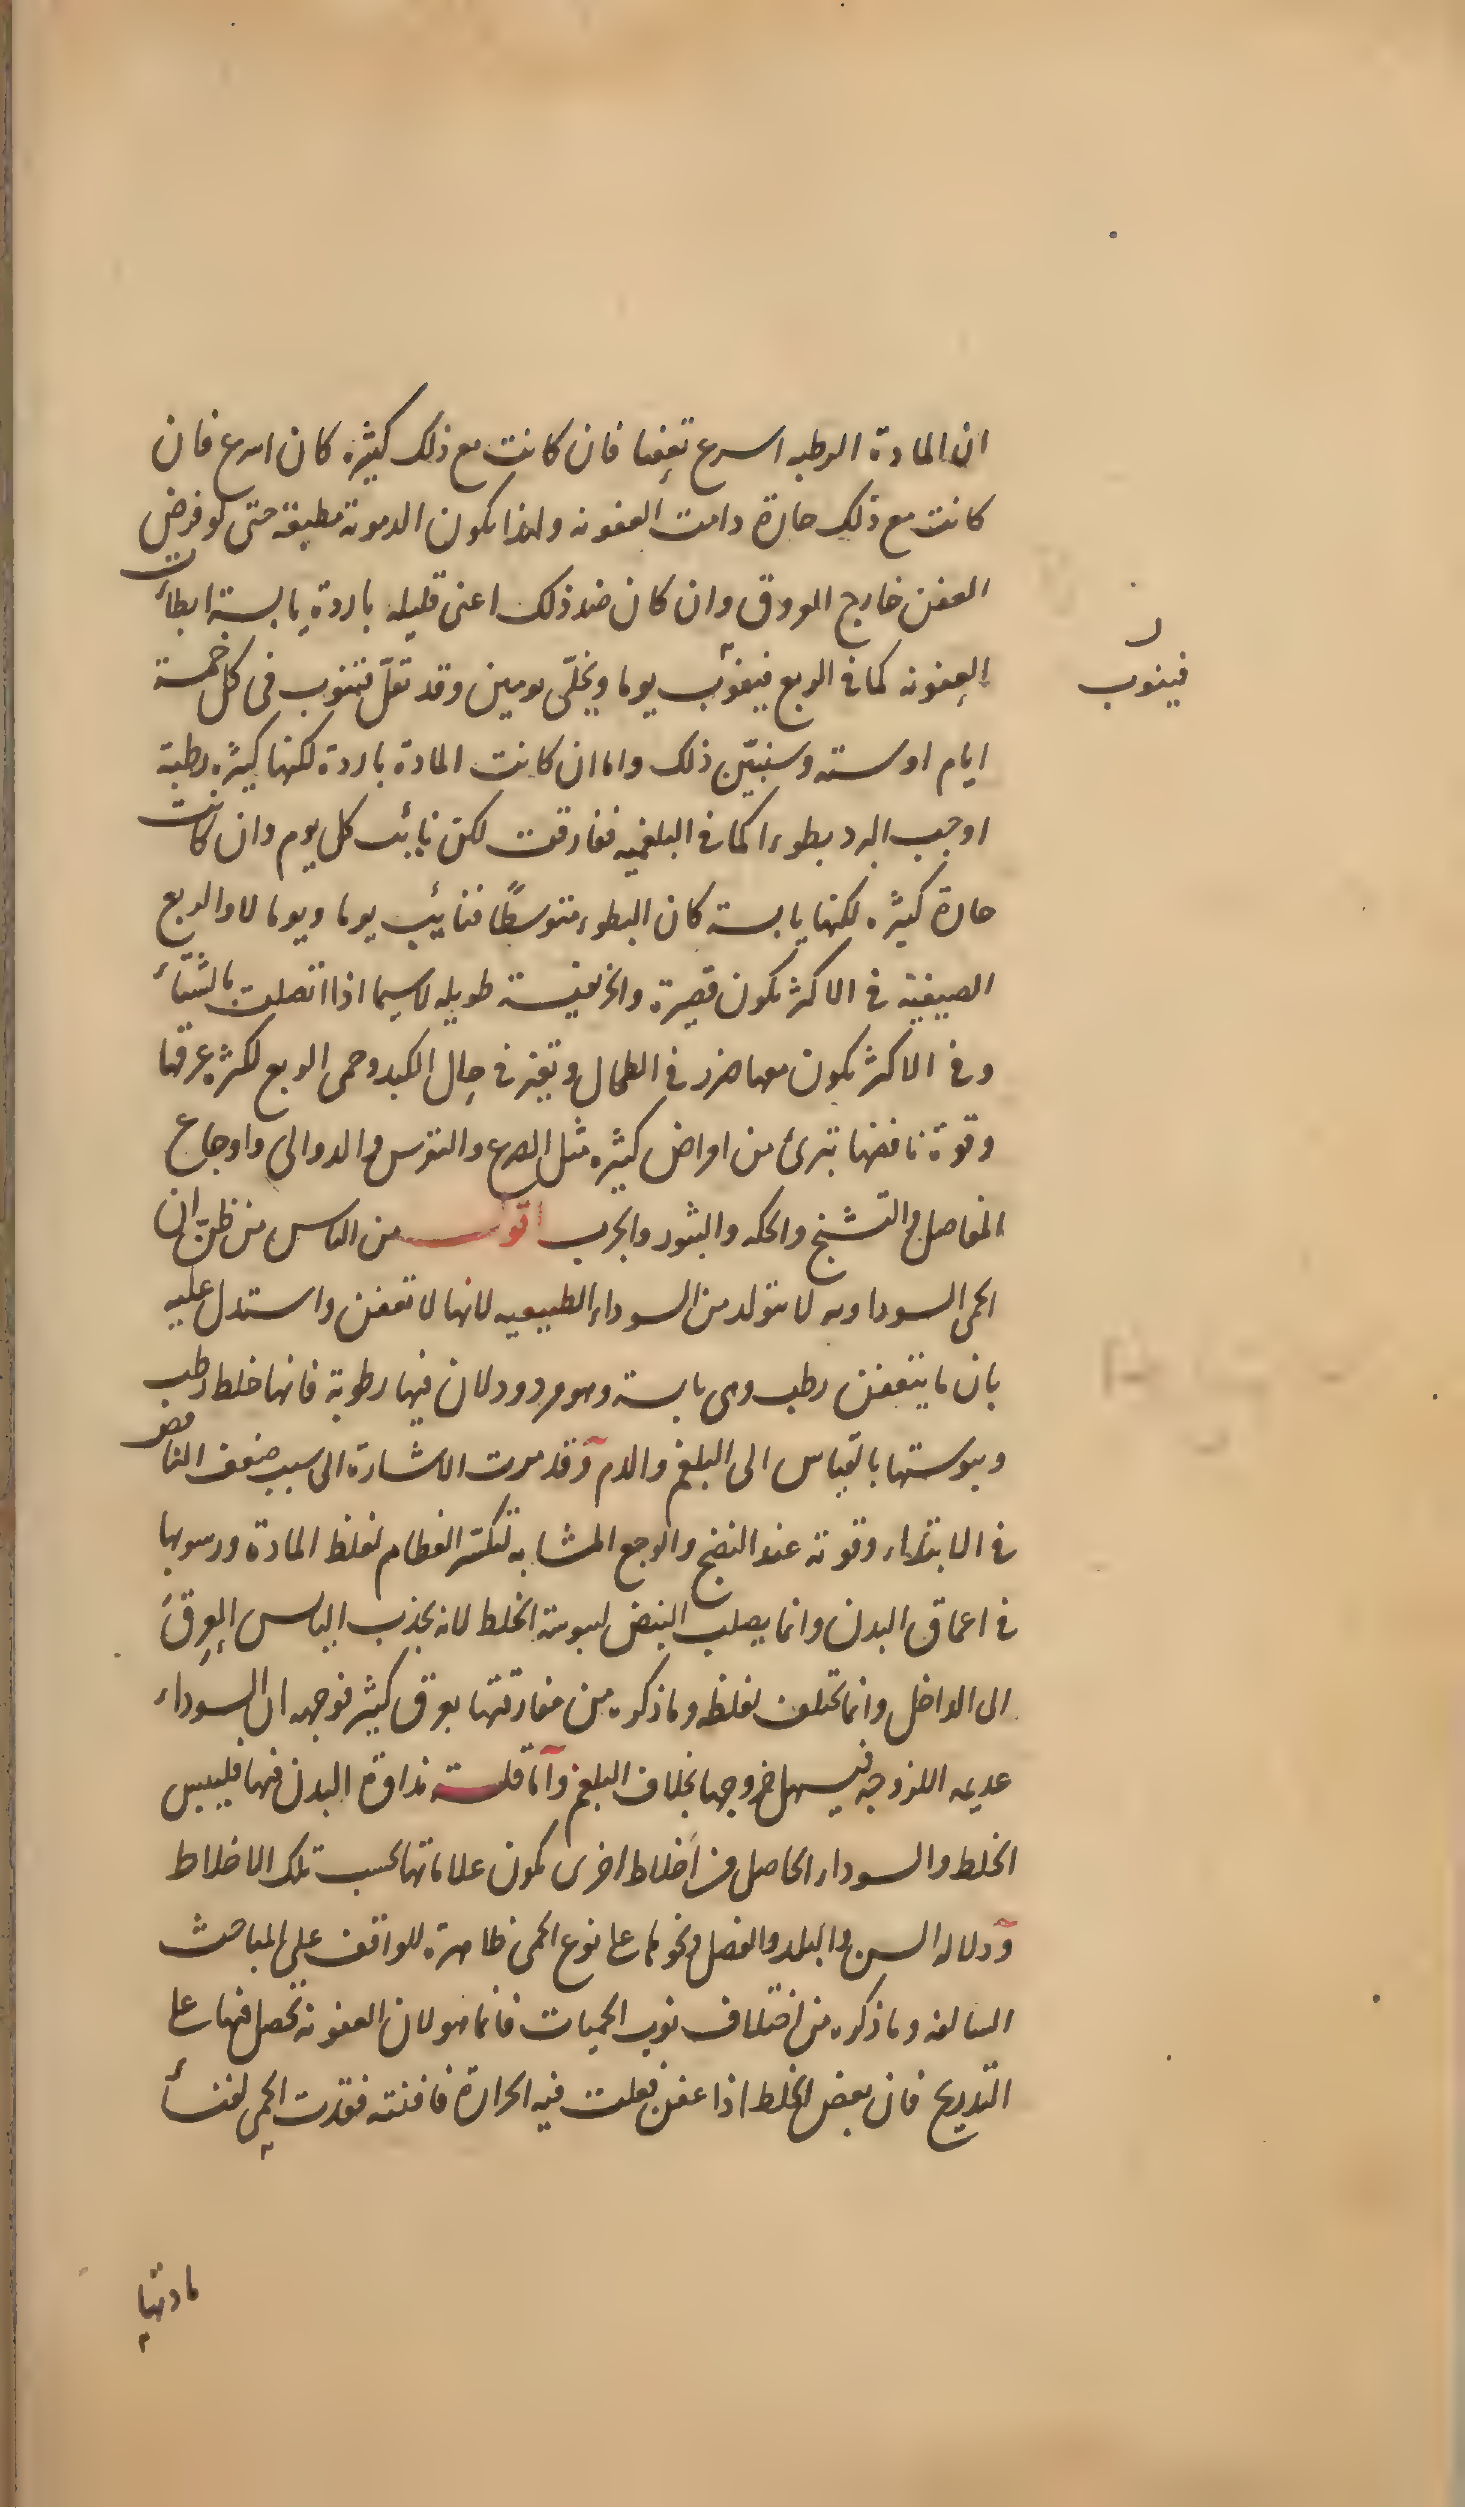 ان المادة الرطبه اسرع تعفنا فان كانت مع ذلك كثيره كان اسرع فان
كانت مع ذلك حارة دامت العفونه ولهذا يكون الدموية مطبقة حتى لو فرض
العفن خارج العروق وان كان ضد ذلك اعنى قليله باردة يابسة ابطأت
العفونه كما فى الربع فينوب يوما ويخلّى يومين وقد تقلّ فتنوب فى كل خمسة
فينوب
ايام او سته وسنبيّن ذلك واما ان كانت المادة باردة لكنها كثيره رطبة
اوجب البرد بطوءا كما فى البلغميه ففارقت لكن نابت كل يوم وان كانت
حارة كثيره لكنها يابسة كان البطوء متوسطًا فنابت يوما ويوما لا والربع
الصيفية فى الاكثر يكون قصيرة والخريفية طويله لاسيما اذا اتصلت بالشتاء
وفى الاكثر يكون معها ضرر فى الطحال وتغير فى حال الكبد وحمى الربع لكثرة عرقها
وقوة نافضها تبرئ من امراض كثيره مثل الصرع والنقرس والدوالى واوجاع
المفاصل والتشنج والحكه والبثور والجرب اقول من الناس من ظن ان
الحمى السوداويه لا يتولد من السوداء الطبيعيه لانها لا تعفن واستدل عليه
بان ما يتعفن رطب وهى يابسة وهو مردود لان فيها رطوبة فانها خلط رطب
ويبوستها بالقياس الى البلغم والدم وقد مرت الاشارة الى سبب ضعف النافض
فى الابتداء وقوته عند النضج والوجع المشابه لتكسّر العظام لغلظ المادة ورسوبها
فى اعماق البدن وانما يصلب النبض ليبوسة الخلط لانه يجذب اليابس العرق
الى الداخل وانما يختلف لغلظه وما ذكره من مفارقتها بعرق كثير فوجهه ان السوداء
عديمه اللزوجه فيسهل خروجها بخلاف البلغم وآما قلة نداوة البدن فيها فليبس
الخلط والسوداء الحاصل من اخلاط اخرى يكون علاماتها بحسب تلك الاخلاط
ودلاله السن والبلد والفصل ونحوها على نوع الحمى ظاهرة للواقف على المباحث
السالفه وما ذكره من اختلاف نوب الحميات فانما هو لان العفونة تحصل فيها على
التدريج فان بعض الخلط اذا عفن فعلت فيه الحرارة فافنته ففترت الحمى لفناء
مادتها